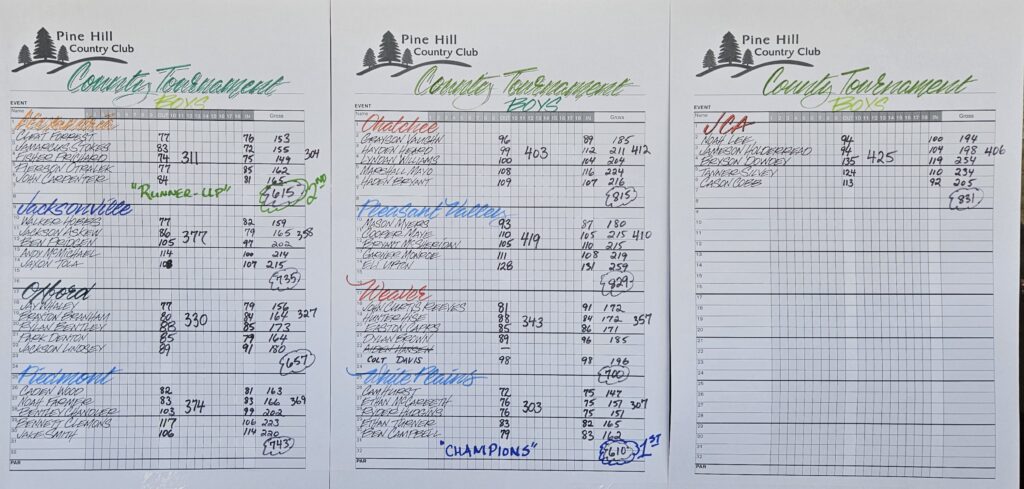 Pine Hill
Country Club
County Tournament
BOYS
EVENT
Name OUT IN Gross
Alexandria
CLINT FORREST 77 76 153
JAMARCUS STOKES 83 72 155
FISHER PRICHARD 74 311 75 149 304
77 85 162
JOHN CARPENTER 84 81 165
"RUNNER-UP" 615 2ND
Jacksonville
WALKER HOBBS 77 82 159
JACKSON ASKEW 86 79 165 358
BEN PRIDGEN 105 377 97 202
ANDY MCMICHAEL 114 100 214
JAXON TOLA 108 107 215
735
Oxford
JAY WHALEY 77 79 156
BRAXTON BRANHAM 80 84 164 327
RYLAN BENTLEY 88 330 85 173
PARK DENTON 85 79 164
JACKSON LINDSEY 89 91 180
657
Piedmont
CADEN WOOD 82 81 163
NOAH FARMER 83 83 166 369
BENTLEY CHANDLER 103 374 99 202
BENNETT CLEMONS 117 106 223
JAKE SMITH 106 114 220
743
PAR
Pine Hill
Country Club
County Tournament
BOYS
EVENT
Name OUT IN Gross
Ohatchee
GRAYSON VAUGHN 96 89 185
HAYDEN HEARD 99 112 211 412
LYNDAN WILLIAMS 100 403 104 204
MARSHALL MAYO 108 116 224
HADEN BRYANT 109 107 216
815
Pleasant Valley
MASON MYERS 93 87 180
COOPER MAYE 110 105 215 410
BRYANT MCSHERIDAN 105 419 110 215
GARNER MONROE 111 108 219
ELI LIPTON 128 131 259
829
Weaver
JOHN CURTIS REEVES 81 91 172
HUNTER HISE 88 84 172 357
EASTON 85 343 86 171
DYLAN BROWN 89 96 185
AIDEN HANSEN —
COLT DAVIS 98 98 196
700
White Plains
CAM HURST 72 75 147
ETHAN MCCARBETH 76 75 151 307
RYDER HUDGINS 76 303 75 151
ETHAN TURNER 83 82 165
BEN CAMPBELL 79 83 162
"CHAMPIONS" 610 1ST
PAR
Pine Hill
Country Club
County Tournament
BOYS
EVENT
Name OUT IN Gross
JCA
NOAH LEE 94 100 194
JAMESON HOLDERREAD 94 104 198 406
BRYSON DOWDEY 135 425 119 254
TANNER SILVEY 124 110 234
CASON COBB 113 92 205
831
PAR